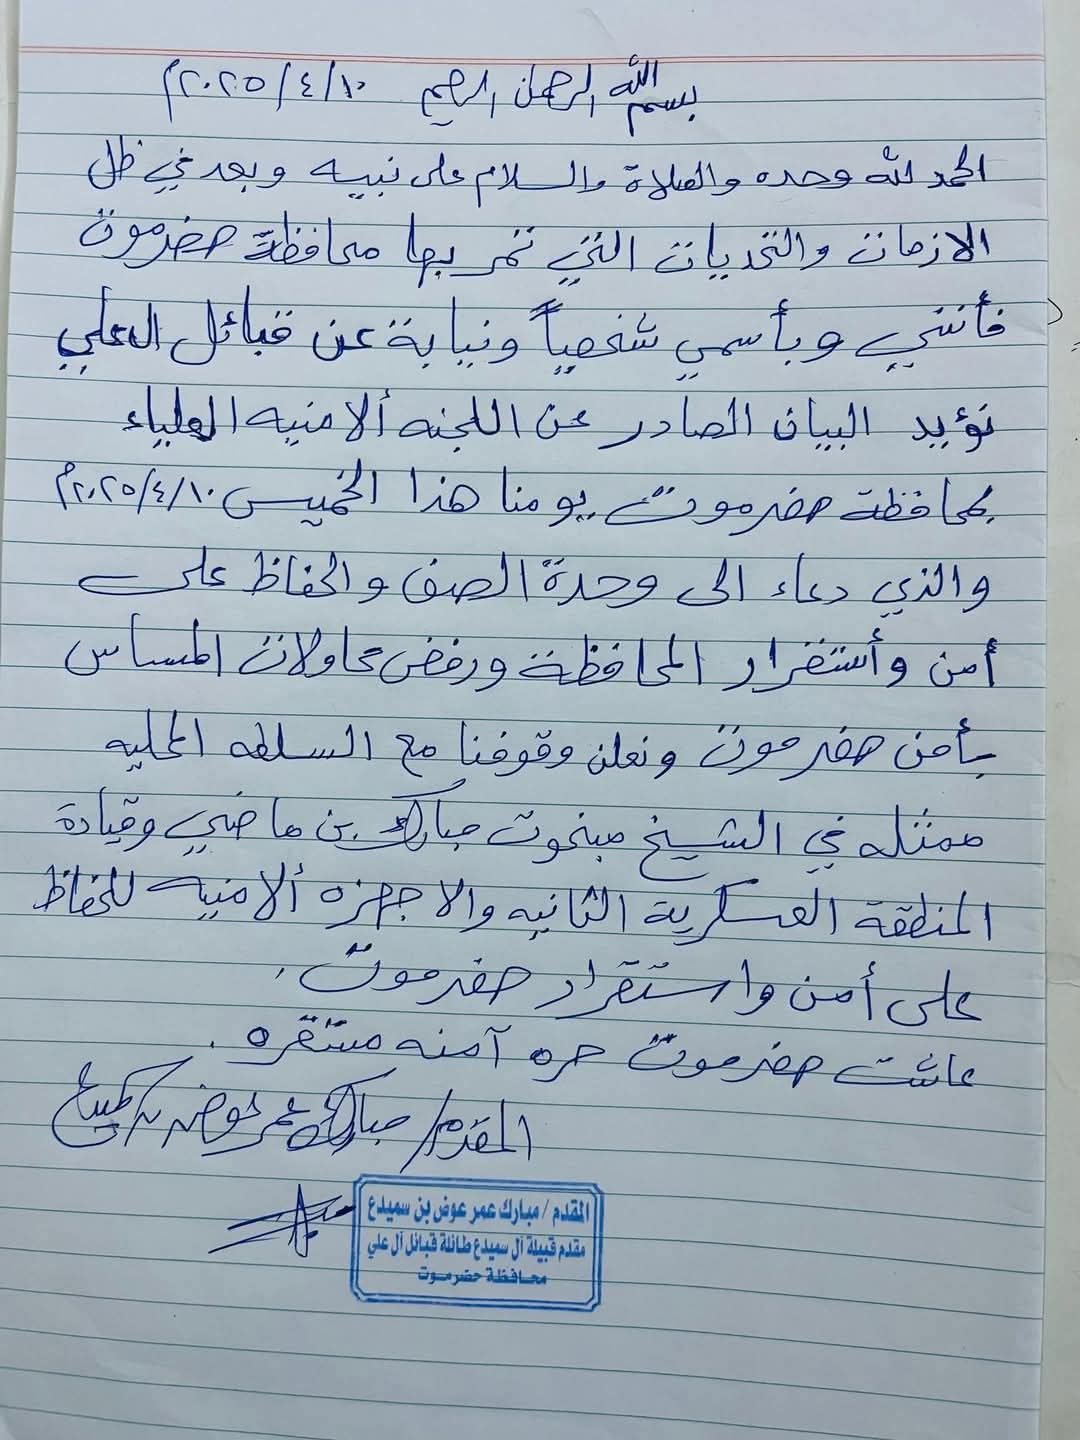 بسم الله الرحمن الرحيم ١٠/٤/٢٠٢٥م
الحمد لله وحده والصلاة والسلام على نبيه وبعد في ظل
الازمات والتحديات التي تمر بها محافظة حضرموت
فأنني وبأسمي شخصياً ونيابة عن قبائل العلي
نؤيد البيان الصادر عن اللجنه ألامنيه العلياء
بمحافظة حضرموت يومنا هذا الخميس ١٠/٤/٢٠٢٥م
والذي دعاء الى وحدة الصف والحفاظ على
أمن وأستقرار المحافظة ورفض محاولات المساس
بأمن حضرموت ونعلن وقوفنا مع السلطه المحليه
ممثله في الشيخ مبخوت مبارك بن ماضي وقيادة
المنطقة العسكرية الثانيه والاجهزه ألامنيه للحفاظ
على أمن واستقرار حضرموت.
عاشت حضرموت حره آمنه مستقره.
المقدم/ مبارك عمر عوض بن سميدع
المقدم/مبارك عمر عوض بن سميدع
مقدم قبيلة آل سميدع طائلة قبائل آل علي
محافظة حضرموت